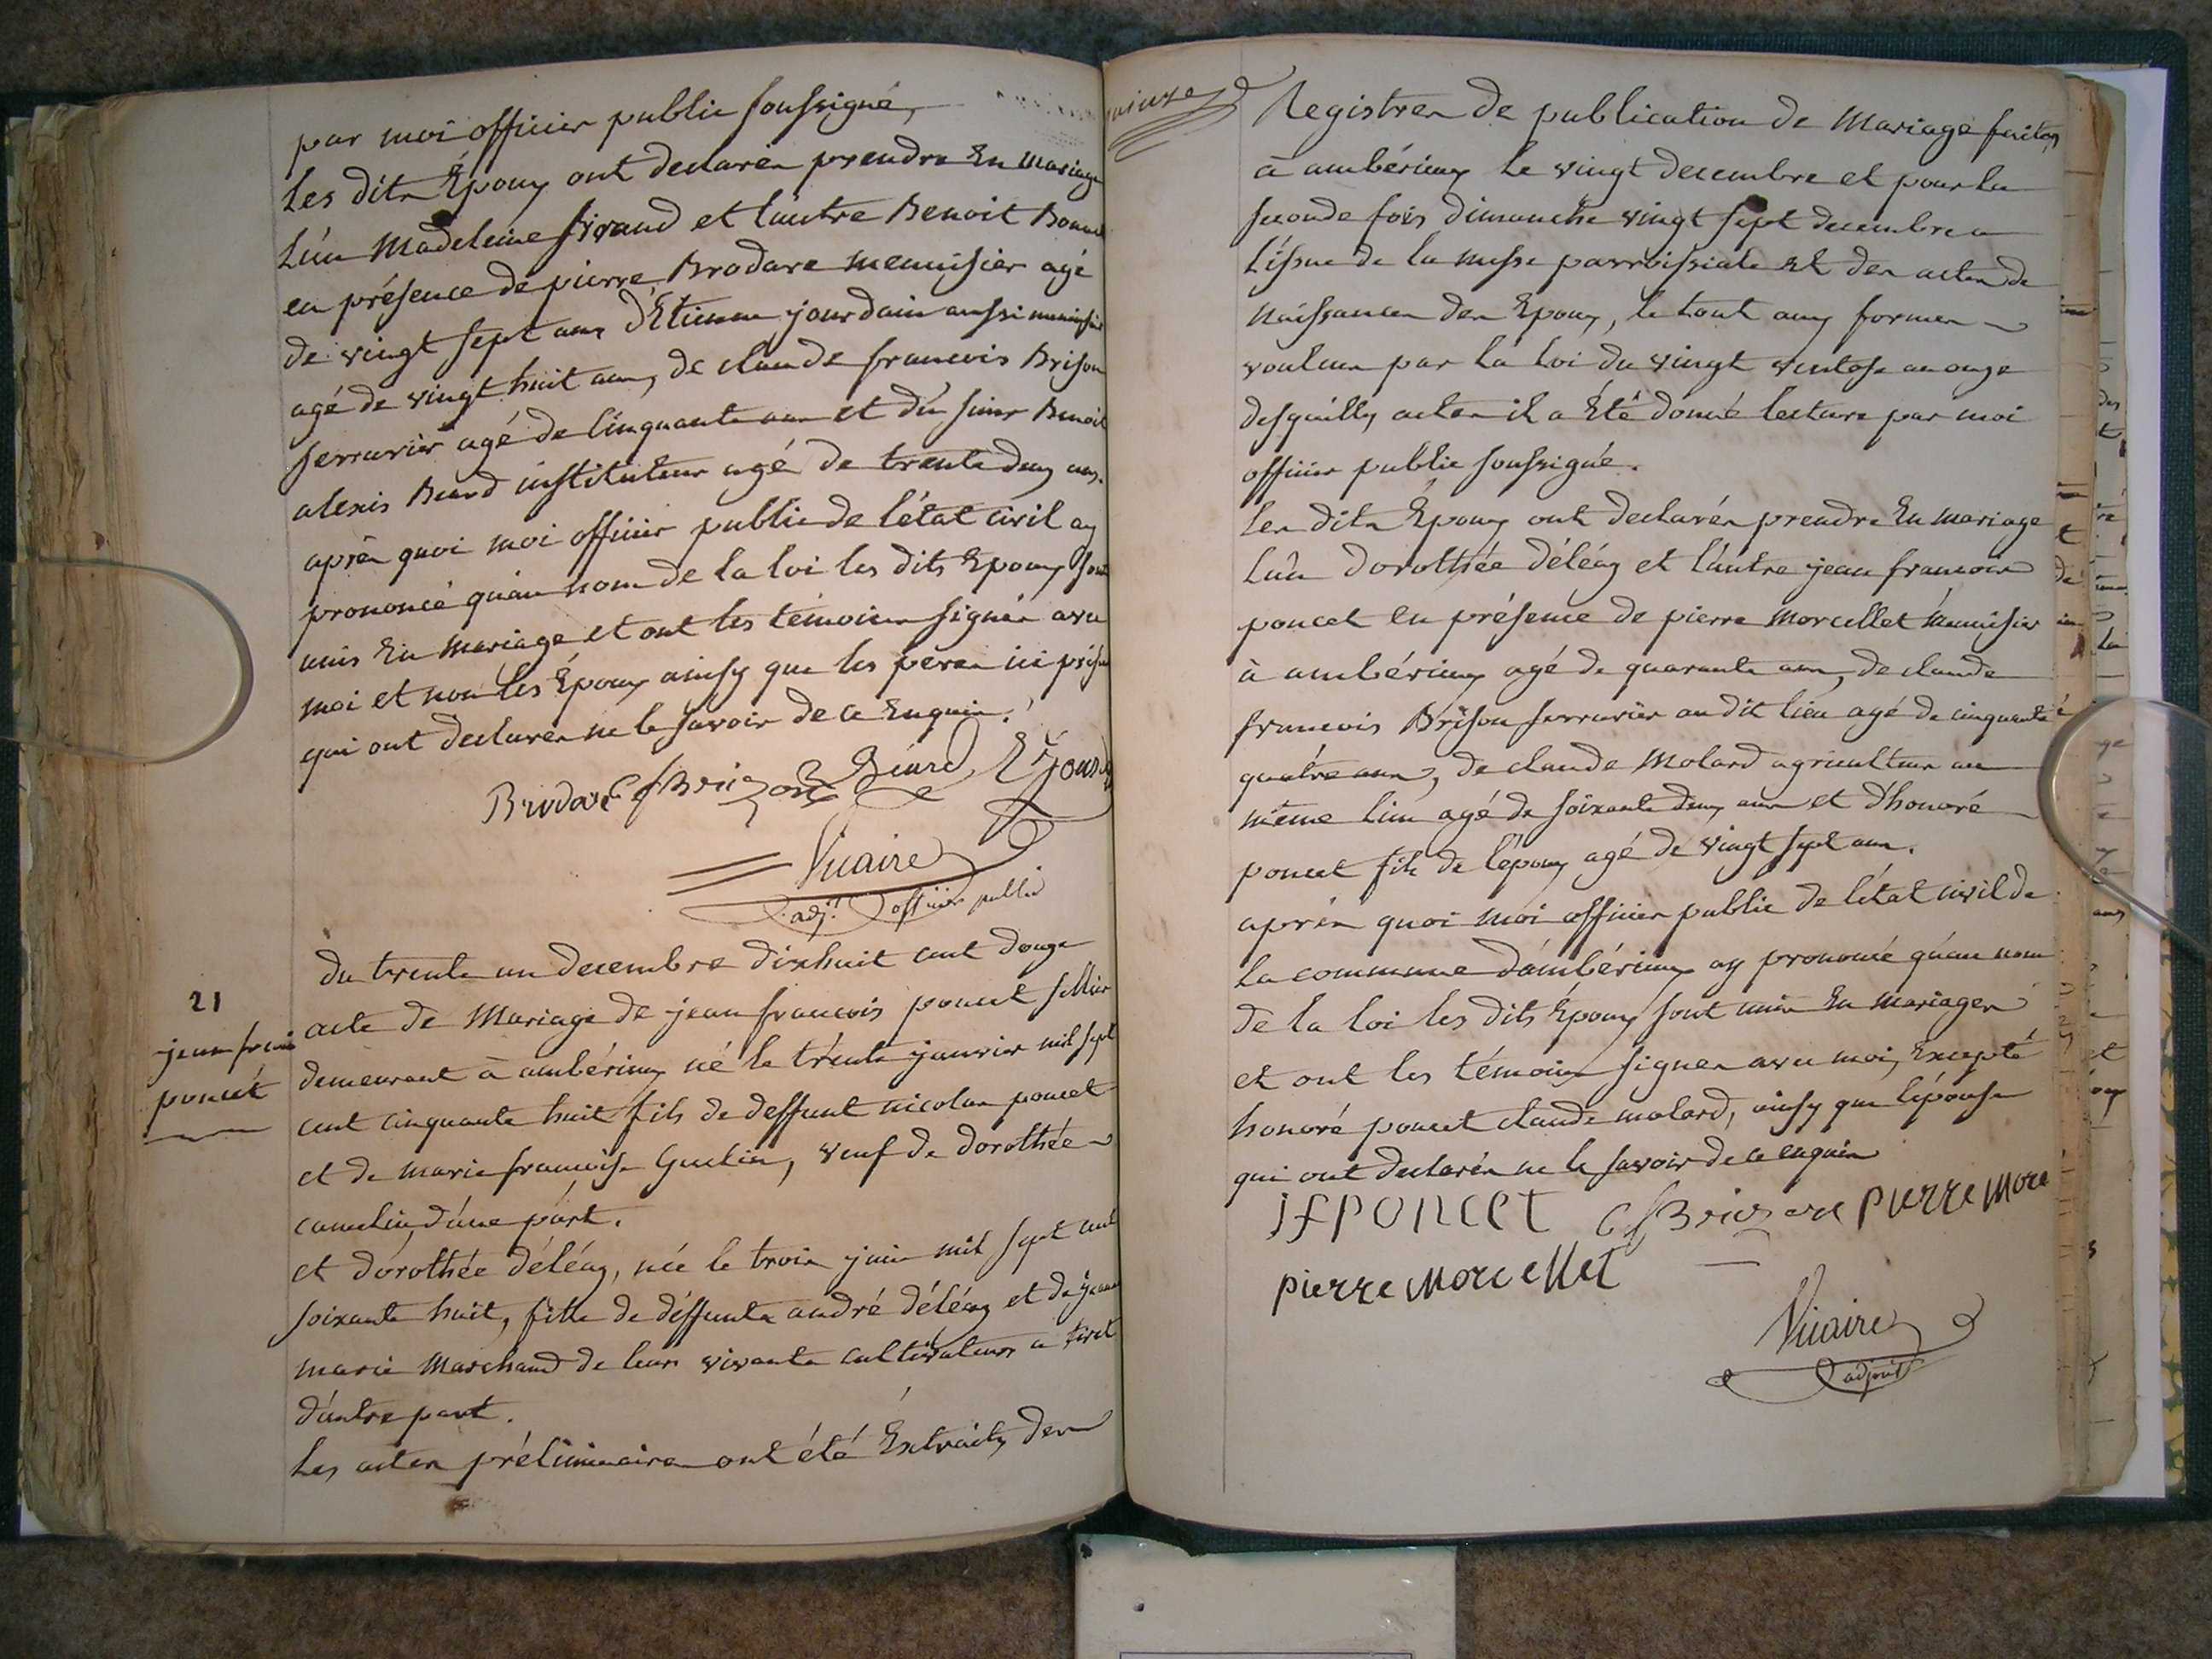 par moi officier public soussigné,
les dits Époux ont declarés prendre En mariage
L'ún Madeleine sivand et l'autre Benoit Bonn
en présence de pierre Brodare menuisier agé
de vingt sept ans d'Etienne jourdain aussi menuisier
agé de vingt huit ans, de claude francois Brison
serrurier agé de Cinquante ans et du sieur Benoit
alexis Beard instituteur agé de trente deux ans.
après quoi moi officier public de l'état civil ay
prononcé qu'au nom de la loi les dits Époux sont
unis En mariage et ont les témoins signés avec
moi et non les Époux ainsy que les peres ici présens
qui ont declarés ne le savoir de ce Enquis.
Brodare Cf Brizon Béard E Jourd
Vicaire
adj.t officier public
21
jean francois
poncet
du trente un decembre dixhuit cent douze
acte de Mariage de jean francois poncet sellier
demeurant à ambérieux né le trente janvier mil sept
cent cinquante huit fils de deffunt nicolas poncet
et de marie francoise Guelin, veuf de dorothée
camelin, d'une part.
et dorothée déléaz, née le trois juin mil sept cent
soixante huit, fille de déffunts andré déléaz et de jeanne
marie Marchand de leurs vivants cultivateurs a tiret
d'autre part.
Les actes préliminaires ont été Extraits des
Registres de publication de Mariage faites
à ambérieux le vingt decembre et pour la
seconde fois dimanche vingt sept decembre a
l'issue de la messe parroissiale et des actes de
naissances des Epoux, le tout aux formes
voulues par la loi du vingt ventose an onze
desquells actes il a Été donné lecture par moi
officier public soussigné.
les dits Époux ont declarés prendre En mariage
L'ún dorothée déléaz et l'autre jean francois
poncet en présence de pierre Morcellet menuisier
à ambérieux agé de quarante ans, de claude
francois Brison serrurier au dit lieu agé de cinquante
quatre ans, de claude Molard agriculteur au
même lieu agé de soixante deux ans et d'honoré
poncet fils de l'époux agé de vingt sept ans.
après quoi moi officier public de l'état civil de
la commune d'ambérieux ay prononcé qu'au nom
de la loi les dits Époux sont unis En mariages
et ont les témoins signes avec moi, Excepté
honoré poncet claude molard, ainsy que l'épouse
qui ont declarés ne le savoir de ce enquis
jf PONCET Cf Brizon PIERRE MORE
PIERRE MORCELLET
Vicaire
adjoint